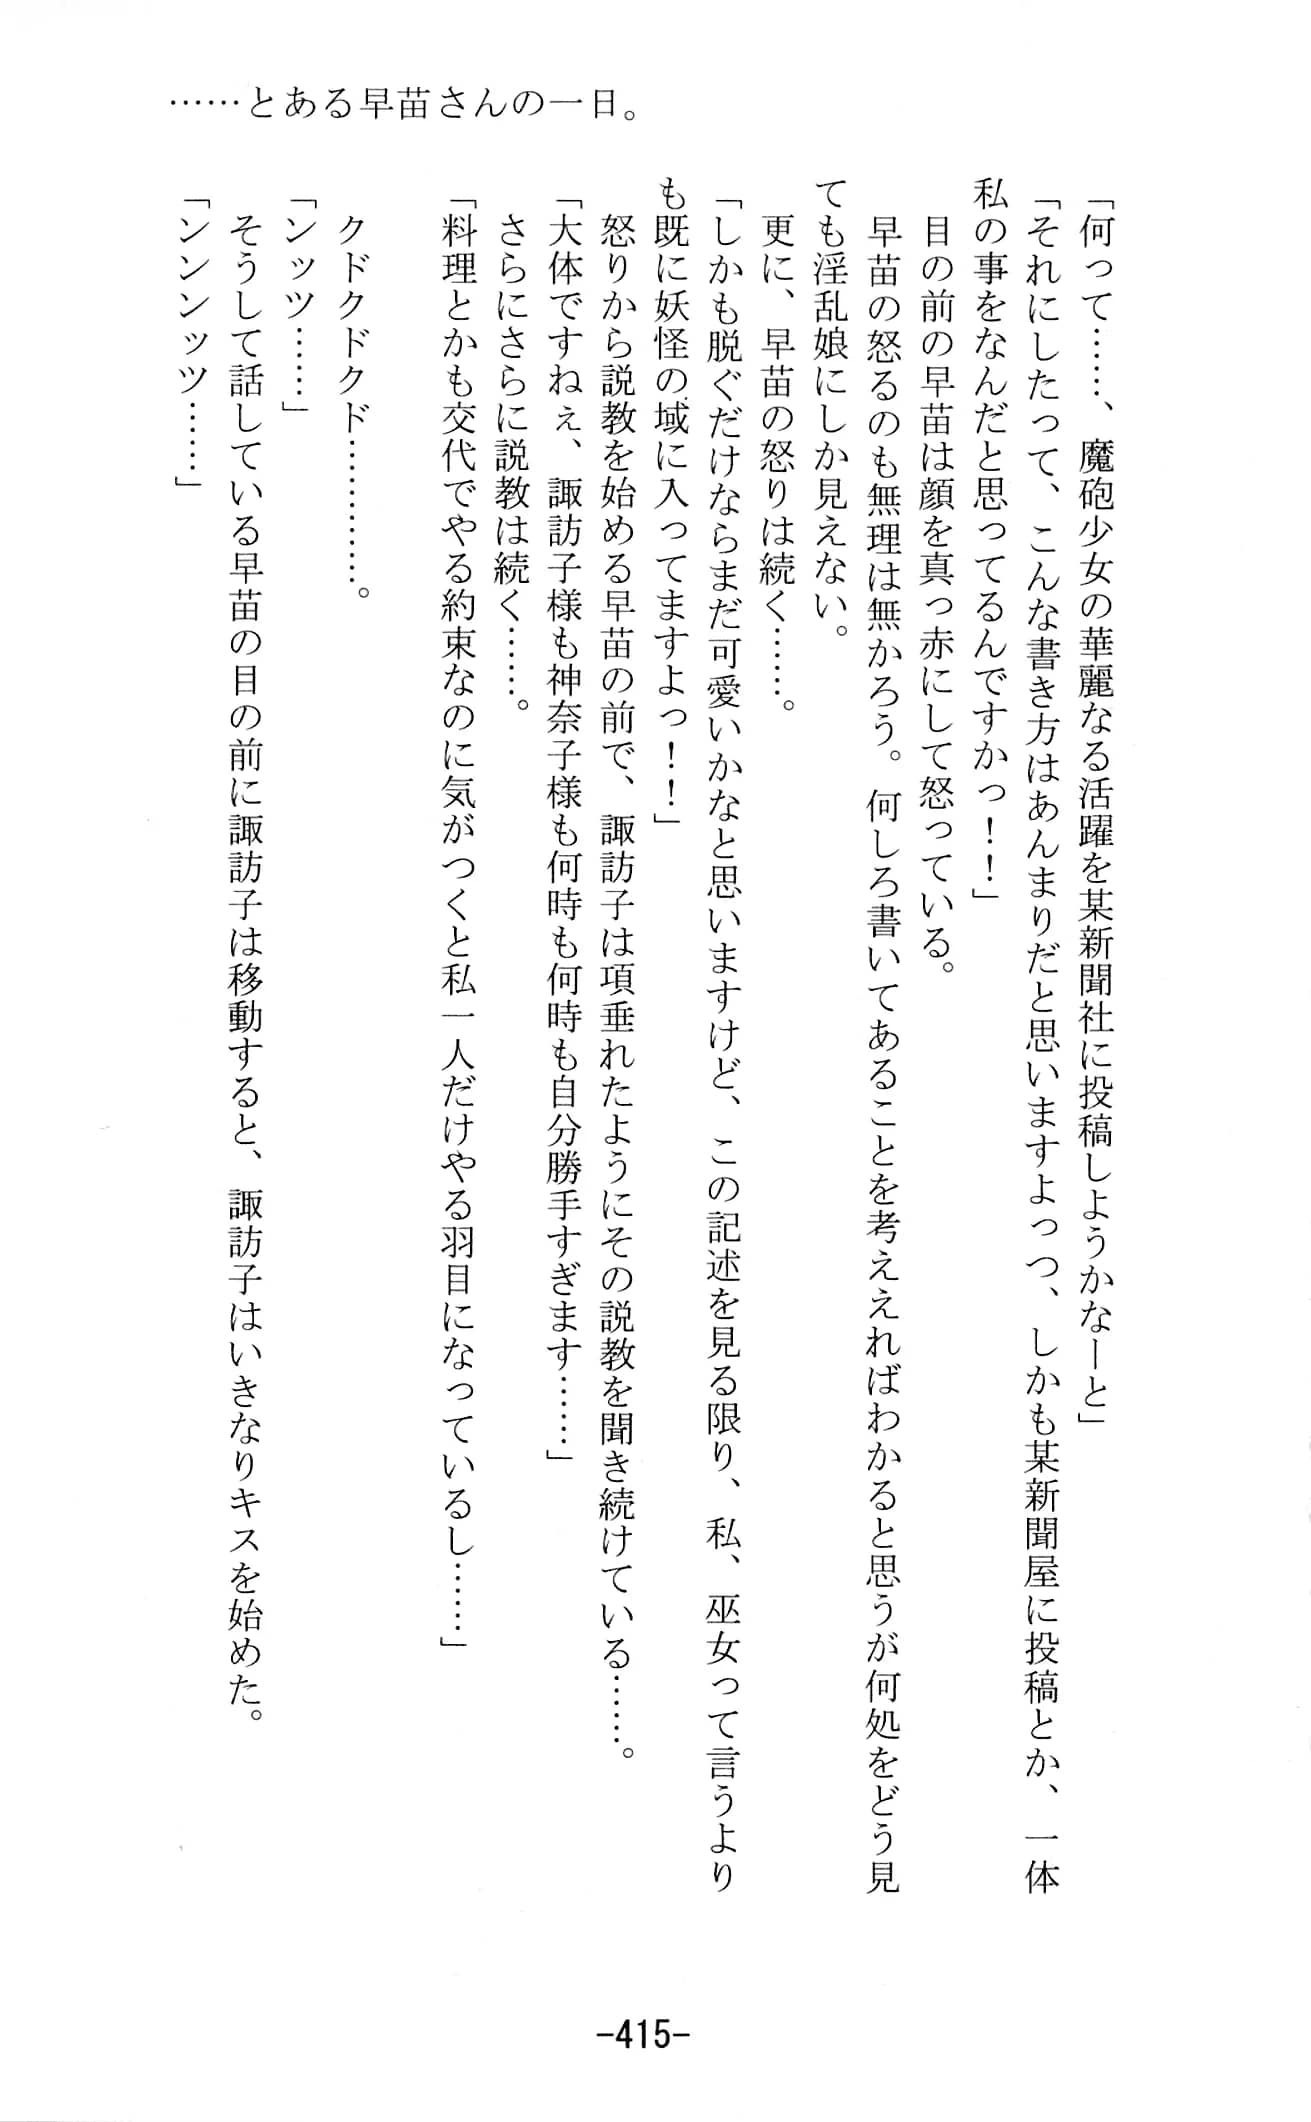 ……とある早苗さんの一日。
「何って……、魔砲少女の華麗なる活躍を某新聞社に投稿しようかなーと」
「それにしたって、こんな書き方はあんまりだと思いますよっつ、しかも某新聞屋に投稿とか、一体
私の事をなんだと思ってるんですかっ！！」
　目の前の早苗は顔を真っ赤にして怒っている。
　早苗の怒るのも無理は無かろう。何しろ書いてあることを考ええればわかると思うが何処をどう見
ても淫乱娘にしか見えない。
　更に、早苗の怒りは続く……。
「しかも脱ぐだけならまだ可愛いかなと思いますけど、この記述を見る限り、私、巫女って言うより
も既に妖怪の域に入ってますよっ！！」
　怒りから説教を始める早苗の前で、諏訪子は項垂れたようにその説教を聞き続けている……。
「大体ですねぇ、諏訪子様も神奈子様も何時も何時も自分勝手すぎます……」
　さらにさらに説教は続く……。
「料理とかも交代でやる約束なのに気がつくと私一人だけやる羽目になっているし……」
　クドクドクド…………。
「ンッツ……」
　そうして話している早苗の目の前に諏訪子は移動すると、諏訪子はいきなりキスを始めた。
「ンンンッツ……」
-415-